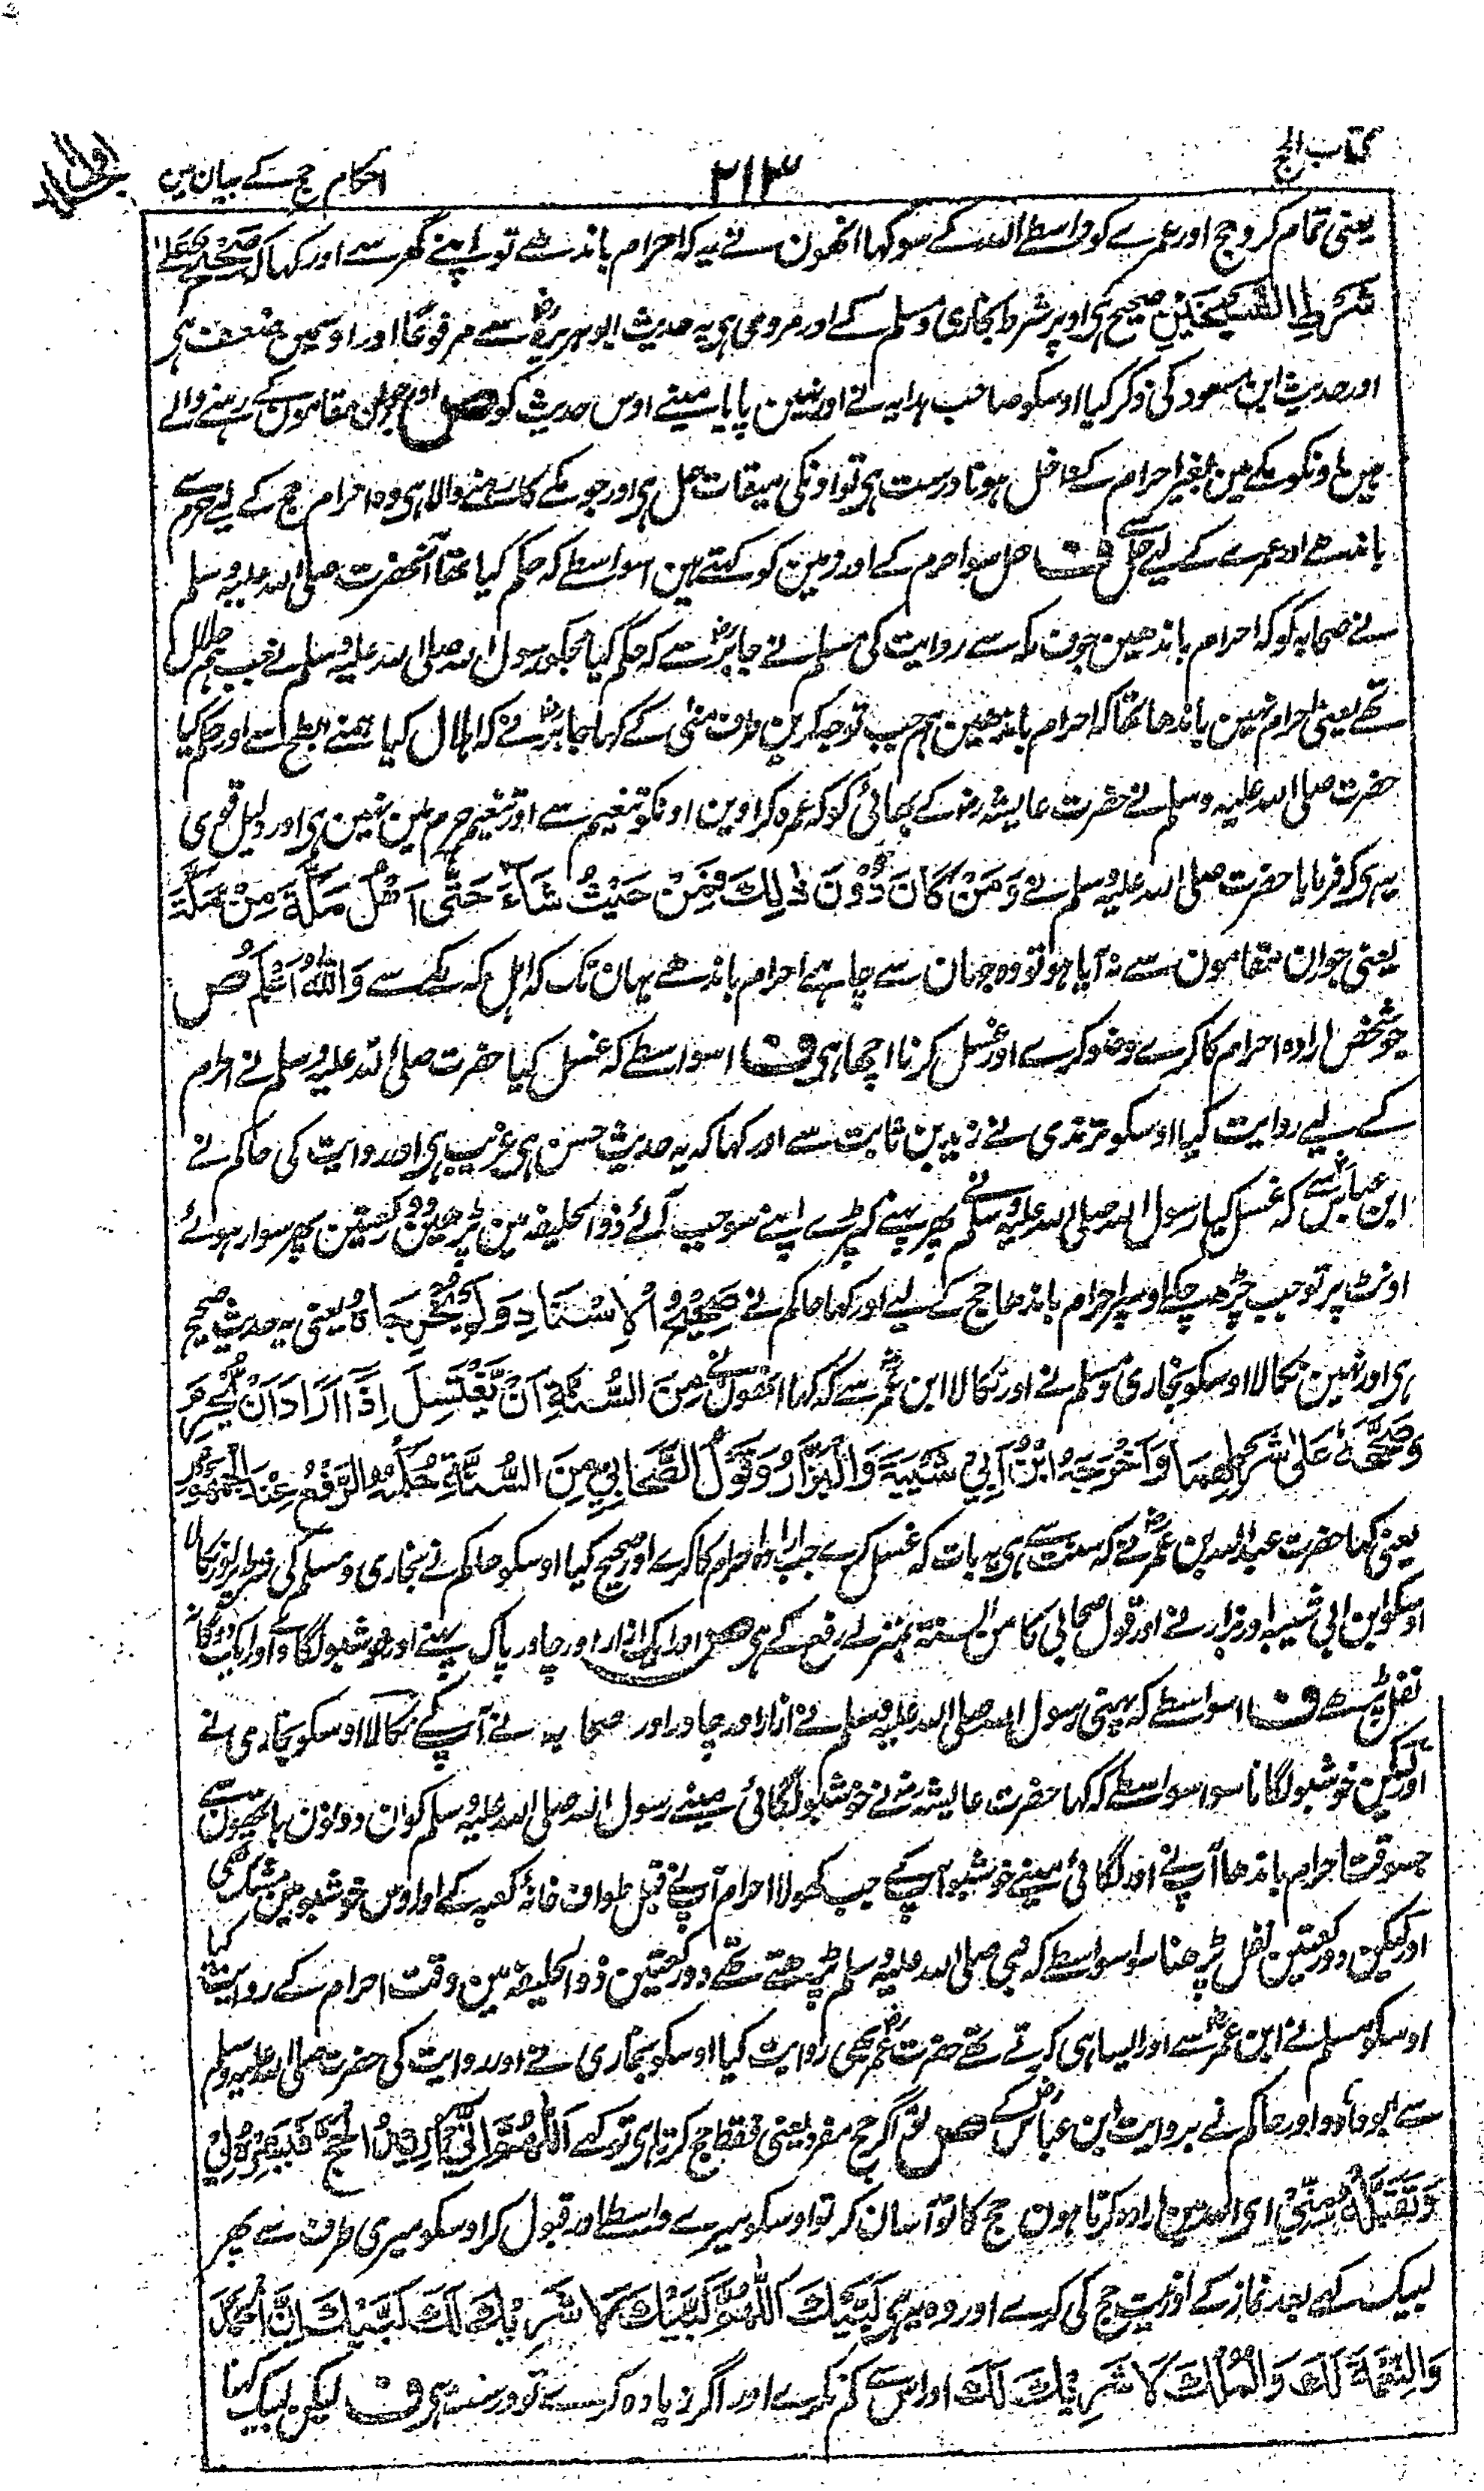 کتاب الحج
۲۱۳
احکام حج کے بیان میں
یعنی تمام کرو حج اور عمرے کو واسطے اللہ کے سو کہا انھون نے یہ کہ احرام باندھے تو اپنے گھر سے اور کہا کہ صَحِیْحٌ عَلٰی
شَرْطِ الشَّیْخَیْنِ صحیح ہی اوپر شرط بخاری و مسلم کے اور مروی ہی یہ حدیث ابو ہریرہؓ سے مرفوعًا اور اوسمین ضعف ہی
اور حدیث ابن مسعود کی ذکر کیا اوسکو صاحب ہدایہ نے اور نہین پایا مینے اوس حدیث کو ص اور جو ان مقامون کے رہنے والے
ہین اونکو مکے مین بغیر احرام کے داخل ہونا درست ہی تو اونکی میقات حل ہی اور جو مکے کا رہنے والا ہی وہ احرام حج کے لیے حرم سے
باندھے اور عمرے کے لیے حل سے ف حل سوا حرم کے اور زمین کو کہتے ہین اسواسطے کہ حکم کیا تھا آنحضرت صلی اللہ علیہ وسلم
نے صحابہ کو کہ احرام باندھین جوف مکہ سے روایت کی مسلم نے جابرؓ سے کہ حکم کیا ہمکو رسول اللہ صلی اللہ علیہ وسلم نے جب ہم حلال
تھے یعنی احرام نہین باندھا تھا کہ احرام باندھین ہم جب توجہ کرین طرف منٰی کے کہا جابرؓ نے کہ اہلال کیا ہمنے ابطح سے اور حکم کیا
حضرت صلی اللہ علیہ وسلم نے حضرت عایشہ رضہ کے بھائی کو کہ عمرہ کراوین اونکو تنعیم سے اور تنعیم حرم مین نہین ہی اور دلیل قوی
یہ ہی کہ فرمایا حضرت صلی اللہ علیہ وسلم نے وَمَنْ کَانَ دُوْنَ ذٰلِكَ فَمِنْ حَیْثُ شَآءَ حَتّٰی اَھْلُ مَکَّةَ مِنْ مَکَّةَ
یعنی جو ان مقامون سے نہ آیا ہو تو وہ جہان سے چاہے احرام باندھے یہان تک کہ اہل مکہ مکے سے وَاللّٰہُ اَعْلَمُ ص
جو شخص ارادہ احرام کا کرے وضو کرے اور غسل کرنا اچھا ہی ف اسواسطے کہ غسل کیا حضرت صلی اللہ علیہ وسلم نے احرام
کے لیے روایت کیا اوسکو ترمذی نے زید بن ثابت سے اور کہا کہ یہ حدیث حسن ہی غریب ہی اور روایت کی حاکم نے
ابن عباسؓ سے کہ غسل کیا رسول اللہ صلی اللہ علیہ وسلم نے پھر پہنے کپڑے اپنے سو جب آئے ذو الحلیفہ مین پڑھین دو رکعتین پھر سوار ہوئے
اونٹ پر تو جب چڑھ چکے اوسپر احرام باندھا حج کے لیے اور کہا حاکم نے صَحِیْحُ الْاِسْنَادِ وَلَمْ یُخْرِجَاہُ یعنی یہ حدیث صحیح
ہی اور نہین نکالا اوسکو بخاری و مسلم نے اور نکالا ابن عمرؓ سے کہ کہا انھون نے مِنَ السُّنَّةِ اَنْ یَّغْتَسِلَ اِذَا اَرَادَ اَنْ یُّحْرِمَ
وَصَحَّحَہٗ عَلٰی شَرْطِہِمَا وَاَخْرَجَہُ ابْنُ اَبِیْ شَیْبَةَ وَالْبَزَّارُ وَقَوْلُ الصَّحَابِیِّ مِنَ السُّنَّةِ حُکْمُہُ الرَّفْعُ عِنْدَ الْجُمْہُوْرِ
یعنی کہا حضرت عبد اللہ بن عمرؓ نے کہ سنت سے ہی یہ بات کہ غسل کرے جب ارادہ احرام کا کرے اور صحیح کیا اوسکو حاکم نے بخاری و مسلم کی شرط پر اور نکالا
اوسکو ابن ابی شیبہ اور بزار نے اور قول صحابی کا من السنة بمنزلے رفع کے ہی ص اور ایک ازار اور چادر پاک پہنے اور خوشبو لگاوے اور ایک دوگانہ
نفل پڑھے ف اسواسطے کہ پہنی رسول اللہ صلی اللہ علیہ وسلم نے ازار اور چادر اور صحابہ نے آپ کے نکالا اوسکو بخاری نے
اور لیکن خوشبو لگانا سو اسواسطے کہ کہا حضرت عایشہ رضہ نے خوشبو لگائی مینے رسول اللہ صلی اللہ علیہ وسلم کو ان دونون ہاتھون سے
جسوقت احرام باندھا آپنے اور لگائی مینے خوشبو آپکے جب کھولا احرام آپنے قبل طواف خانۂ کعبہ کے اور اوس خوشبو مین مشک تھی
اور لیکن دو رکعتین نفل پڑھنا سو اسواسطے کہ نبی صلی اللہ علیہ وسلم پڑھتے تھے دو رکعتین ذو الحلیفہ مین وقت احرام کے روایت کیا
اوسکو مسلم نے ابن عمرؓ سے اور ایسا ہی کرتے تھے حضرت عمرؓ بھی روایت کیا اوسکو بخاری نے اور روایت کی حضرت صلی اللہ علیہ وسلم
سے ابو داؤد اور حاکم نے بروایت ابن عباسؓ کے ص تو اگر حج مفرد یعنی فقط حج کرتا ہی تو کہے اَللّٰہُمَّ اِنِّیْ اُرِیْدُ الْحَجَّ فَیَسِّرْہُ لِیْ
وَتَقَبَّلْہُ مِنِّیْ ای اللہ مین ارادہ کرتا ہون حج کا تو آسان کر تو اوسکو میرے واسطے اور قبول کر اوسکو میری طرف سے پھر
لبیک کہے بعد نماز کے اور نیت حج کی کرے اور وہ یہ ہی لَبَّیْكَ اَللّٰہُمَّ لَبَّیْكَ لَبَّیْكَ لَا شَرِیْكَ لَكَ لَبَّیْكَ اِنَّ الْحَمْدَ
وَالنِّعْمَةَ لَكَ وَالْمُلْكَ لَا شَرِیْكَ لَكَ اور اس سے کم نکرے اور اگر زیادہ کرے تو درست ہی ف لیکن لبیک کہنا